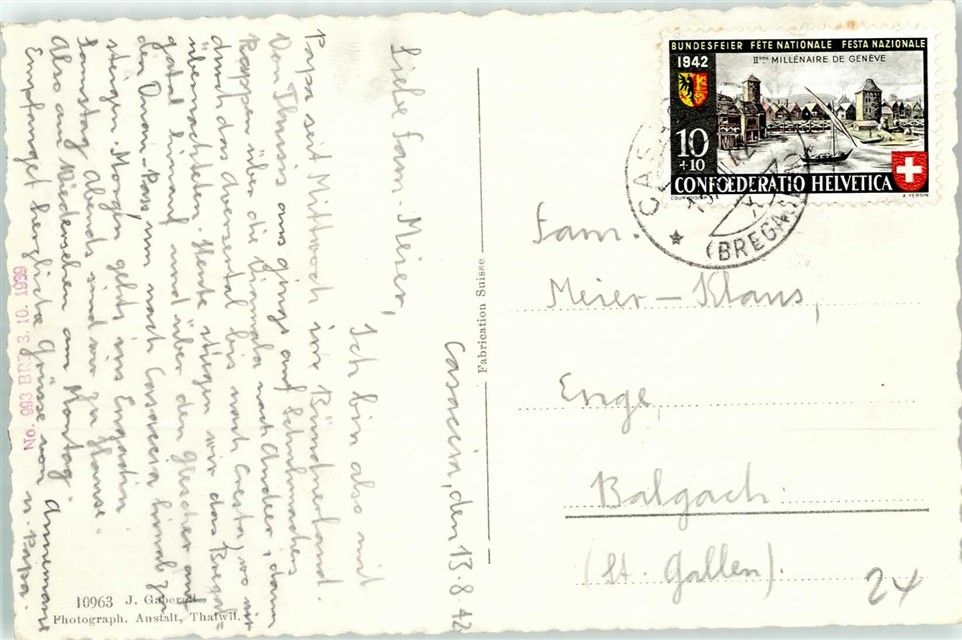 Casaccia, den 13.8.42
Liebe Fam. Meier,
Ich bin also mit
Papa seit Mittwoch im Bündnerland.
Von Thusis aus gings auf Schuhmachers
Rappen über die Viamala nach Andeer, dann
durch das Aversertal bis nach Cresta, wo wir
übernachteten. Heute stiegen wir das Bregal-
gatal hinauf und über den
den Duan-Pass nach Casaccia hinab zu
steigen. Morgen gehts ins Engadin.
Samstag abends sind wir zu Hause.
Also auf Wiedersehen am Montag.
Empfanget herzliche Grüsse von Annemarie
u. Papa.
No. 993 BRB 3. 10. 1939
10963 J. Gaberell
Photograph. Anstalt, Thalwil.
Fabrication Suisse
BUNDESFEIER FÊTE NATIONALE FESTA NAZIONALE
1942 IIème MILLÉNAIRE DE GENÈVE
10
+10
CONFOEDERATIO HELVETICA
COURVOISIER S.A. A. YERSIN
CAS
(BREGAGLIA)
Fam.
Meier – Klaus,
Enge,
Balgach.
(St. Gallen).
24